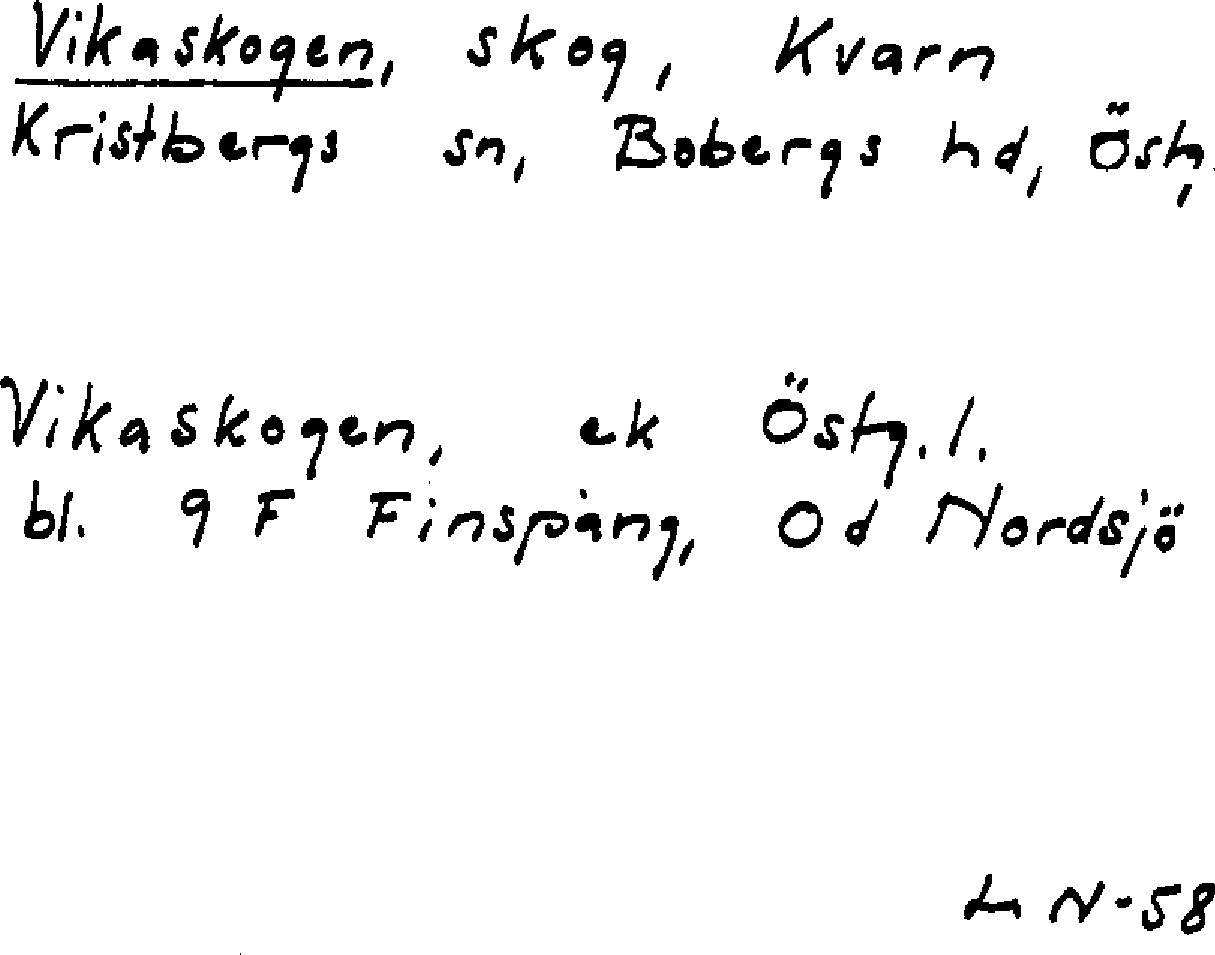 Vikaskogen, skog, Kvarn
Kristbergs sn, Bobergs hd, Östg.
Vikaskogen, ek Östg. l.
bl. 9 F Finspång, 0d Nordsjö
LN-58